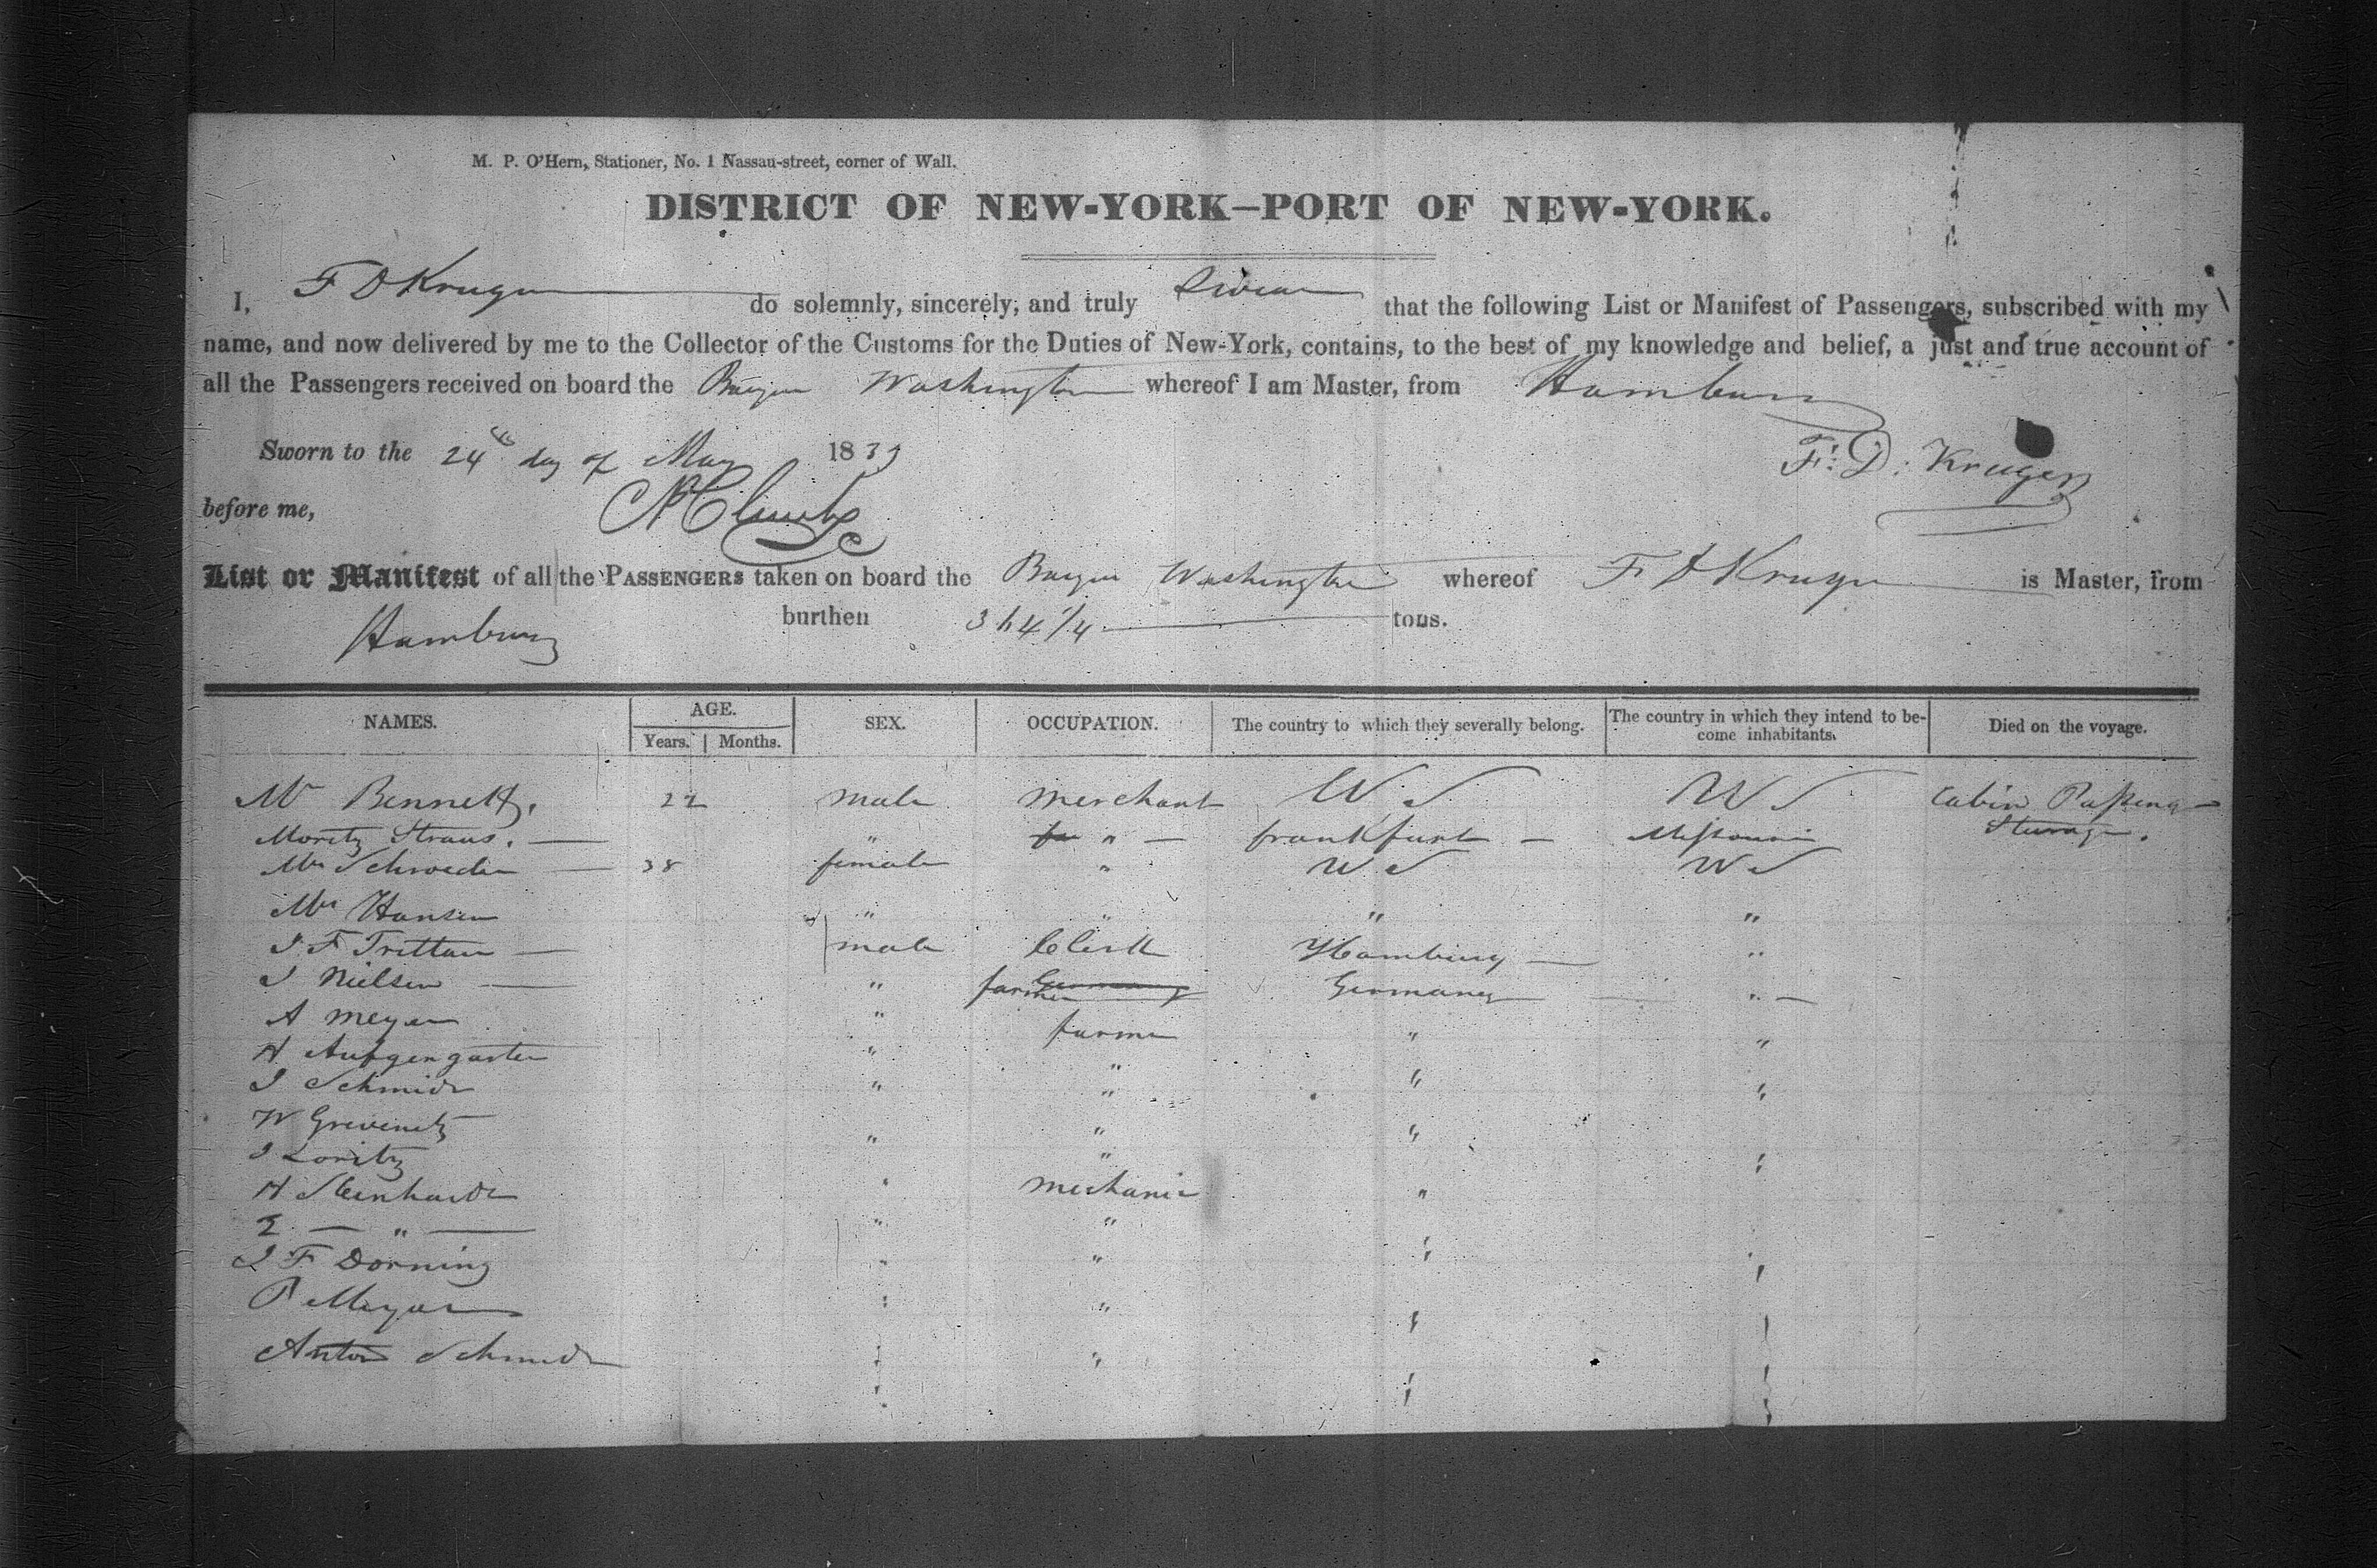 M. P. O'Hern, Stationer, No. 1 Nassau-street, corner of Wall.
DISTRICT OF NEW-YORK—PORT OF NEW-YORK.
I, F D Kruger do solemnly, sincerely, and truly swear that the following List or Manifest of Passengers, subscribed with my
name, and now delivered by me to the Collector of the Customs for the Duties of New-York, contains, to the best of my knowledge and belief, a just and true account of
all the Passengers received on board the Barque Washington whereof I am Master, from Hamburg
Sworn to the 24th day of May 1839
F: D: Kruger
before me,
List or Manifest of all the PASSENGERS taken on board the Barque Washington whereof F D Kruger is Master, from
Hamburg burthen tons.
NAMES. AGE. Years. Months. SEX. OCCUPATION. The country to which they severally belong. The country in which they intend to become inhabitants. Died on the voyage.
Mr Bennett. 22 male merchant U S U S Cabin Passeng
Moritz Straus. — " " — Frankfurt — Missouri Sterage.
Mrs Schroeder — 38 female " U S U S
Mrs Hansen " " " "
J F Trittau — male Clerk Hamburg — "
J Nielsen — " farmer Germany " —
A Meyer " farmer " "
H Aufgengarten " " " "
J Schmidt " " " "
W Grevenitz " " "
J Loritz " "
H Steinhardt " mechanic "
— " — " " "
J F Dorning " " "
P Meyer " " "
Anton Schmidt " " "